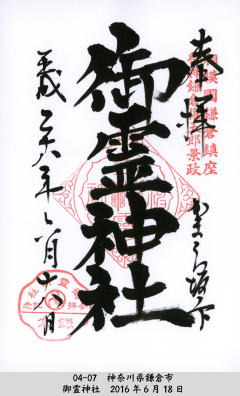 奉拝
相模國鎌倉鎮座
かまくら坂ノ下
御霊神社
平成二十八年六月十八日
04-07 神奈川県鎌倉市
御霊神社 2016年6月18日